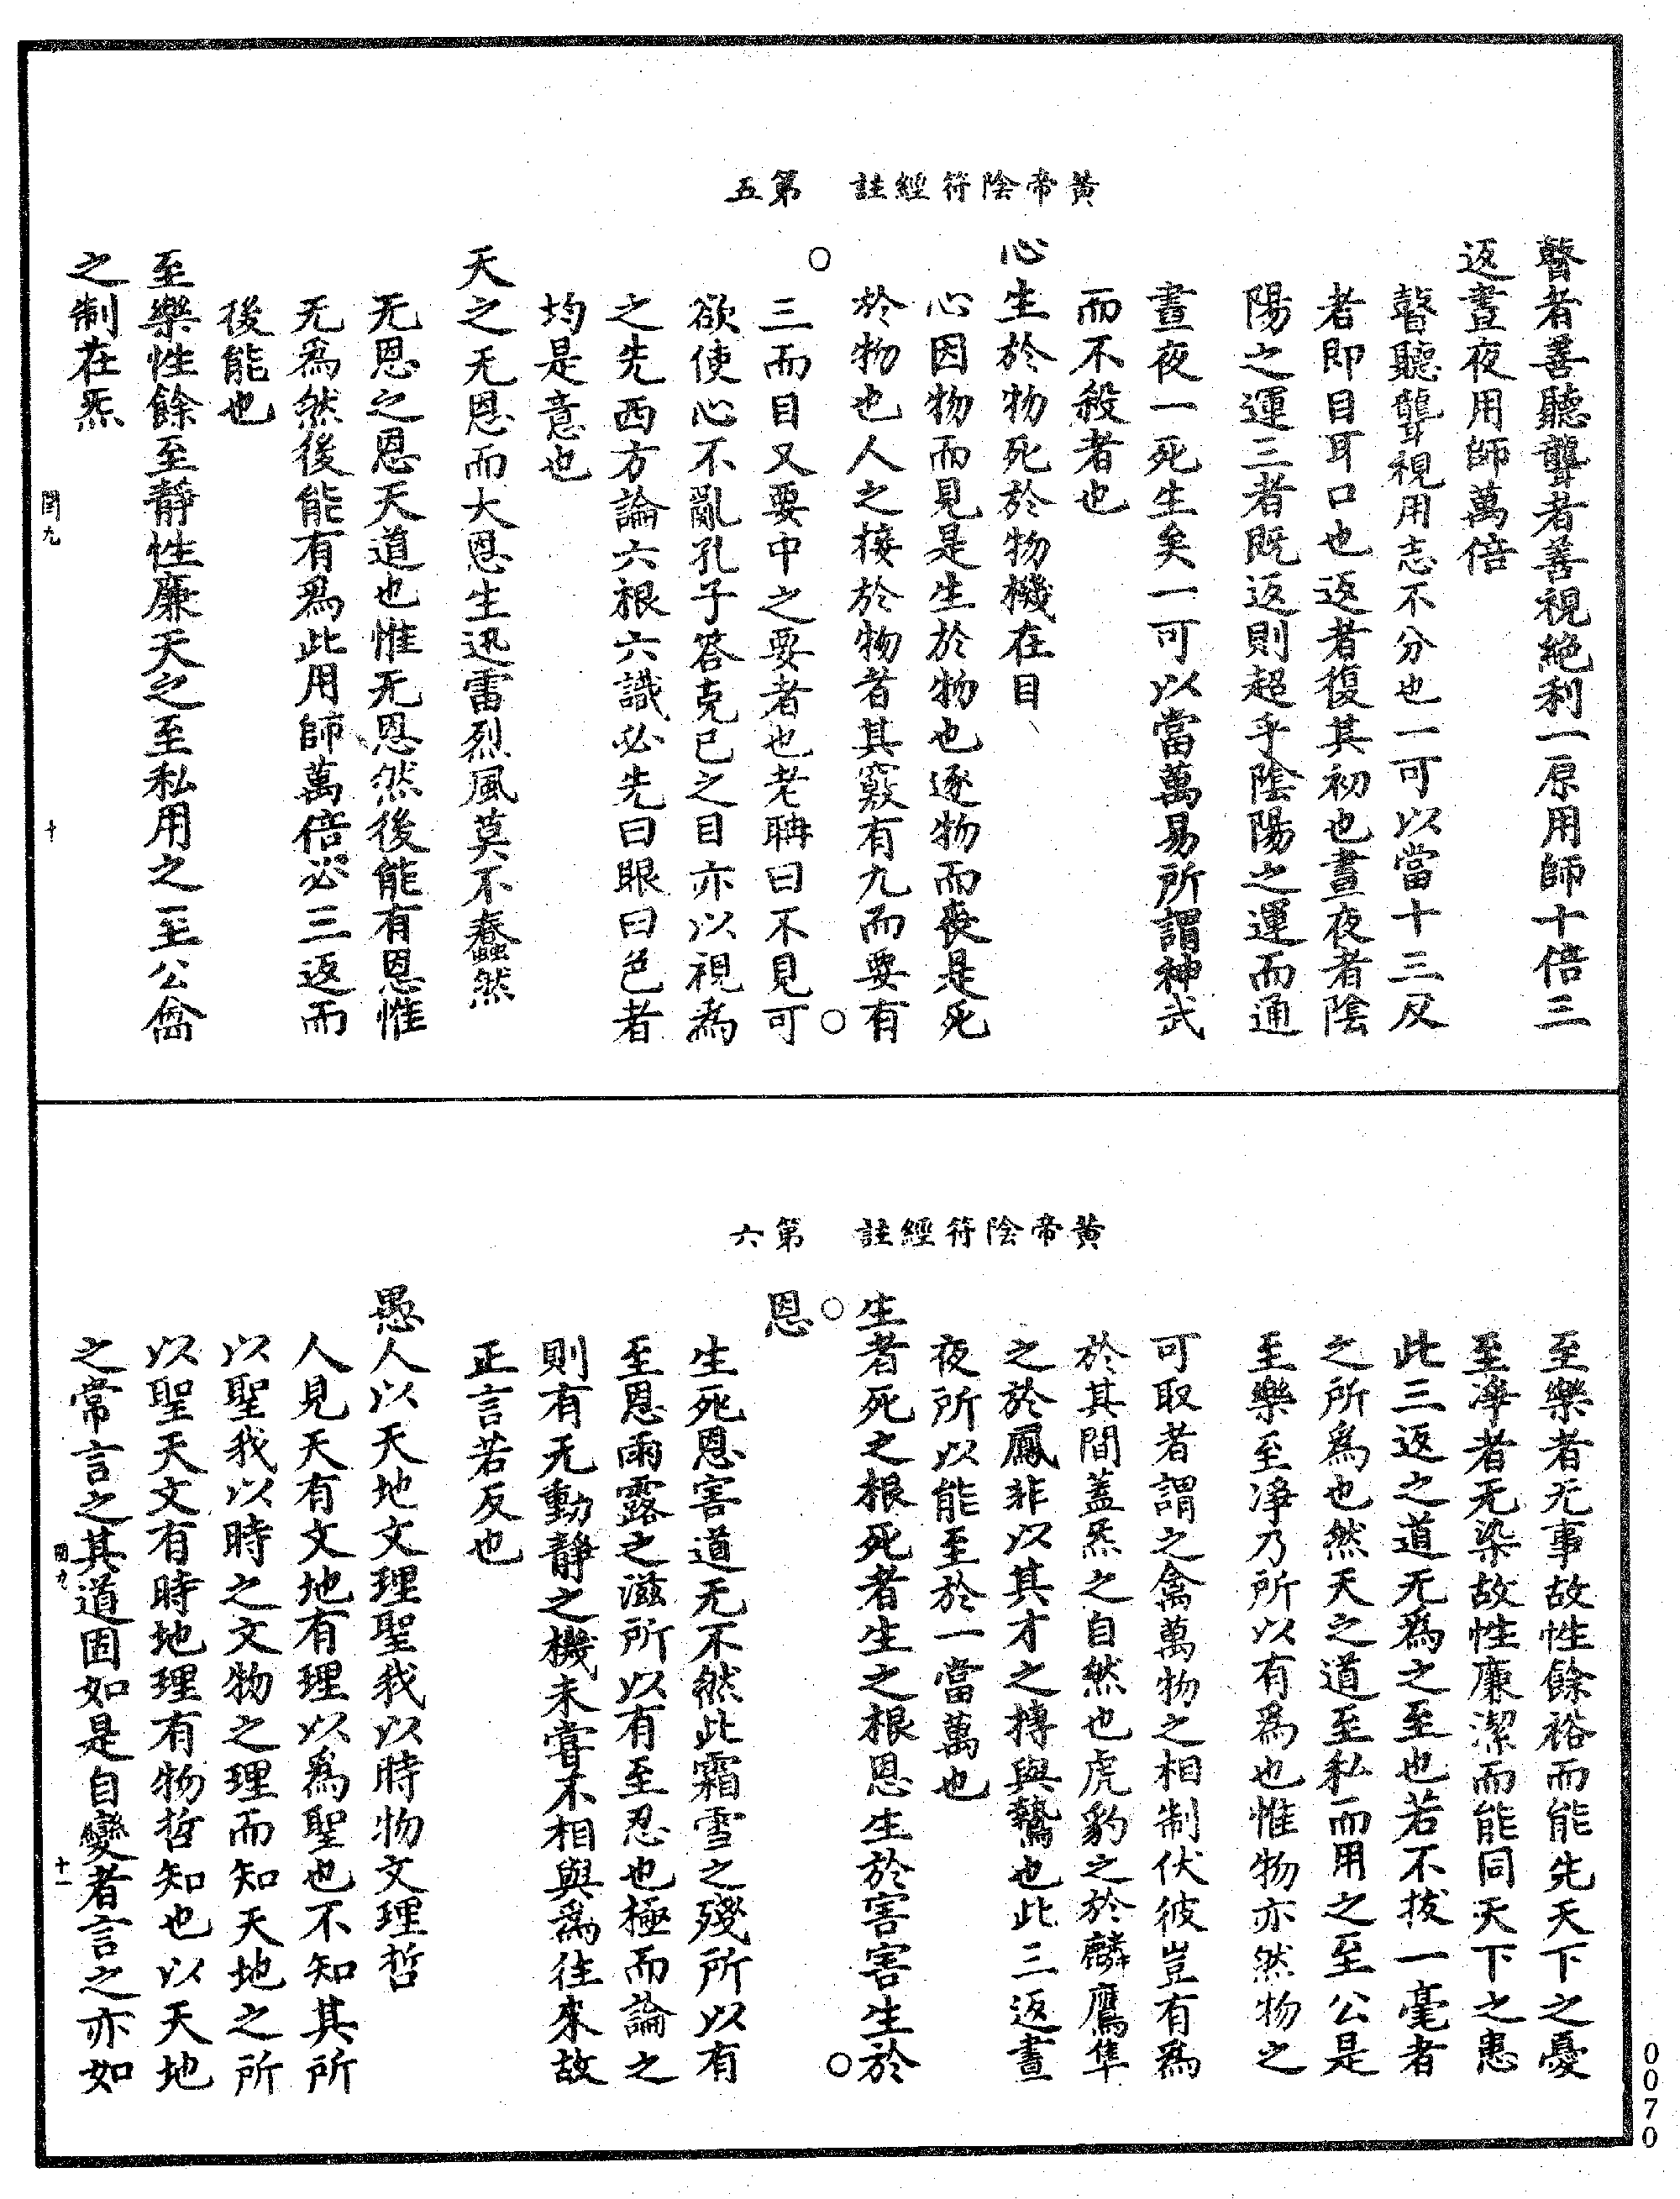 黃帝陰符經註　第五
瞽者善聽聾者善視絶利一原用師十倍三
返晝夜用師萬倍
瞽聽聾視用志不分也一可以當十三反
者即目耳口也返者復其初也晝夜者陰
陽之運三者既返則超乎陰陽之運而通
晝夜一死生矣一可以當萬易所謂神武
而不殺者也
心生於物死於物機在目
心因物而見是生於物也逐物而喪是死
於物也人之接於物者其竅有九而要有
三而目又要中之要者也老聃曰不見可
欲使心不亂孔子答克己之目亦以視爲
之先西方論六根六識必先曰眼曰色者
均是意也
天之无恩而大恩生迅雷烈風莫不蠢然
无恩之恩天道也惟无恩然後能有恩惟
无爲然後能有爲此用師萬倍必三返而
後能也
至樂性餘至靜性廉天之至私用之至公禽
之制在炁
閏九
十
黃帝陰符經註　第六
至樂者无事故性餘裕而能先天下之憂
至凈者无染故性廉潔而能同天下之患
此三返之道无爲之至也若不拔一毫者
之所爲也然天之道至私而用之至公是
至樂至凈乃所以有爲也惟物亦然物之
可取者謂之禽萬物之相制伏彼豈有爲
於其間蓋炁之自然也虎豹之於麟鷹隼
之於鳳非以其才之搏與鷙也此三返晝
夜所以能至於一當萬也
生者死之根死者生之根恩生於害害生於
恩
生死恩害道无不然此霜雪之殘所以有
至恩雨露之滋所以有至忍也極而論之
則有无動靜之機未嘗不相與爲往來故
正言若反也
愚人以天地文理聖我以時物文理哲
人見天有文地有理以爲聖也不知其所
以聖我以時之文物之理而知天地之所
以聖天文有時地理有物哲知也以天地
之常言之其道固如是自變者言之亦如
閏九
十一
0070